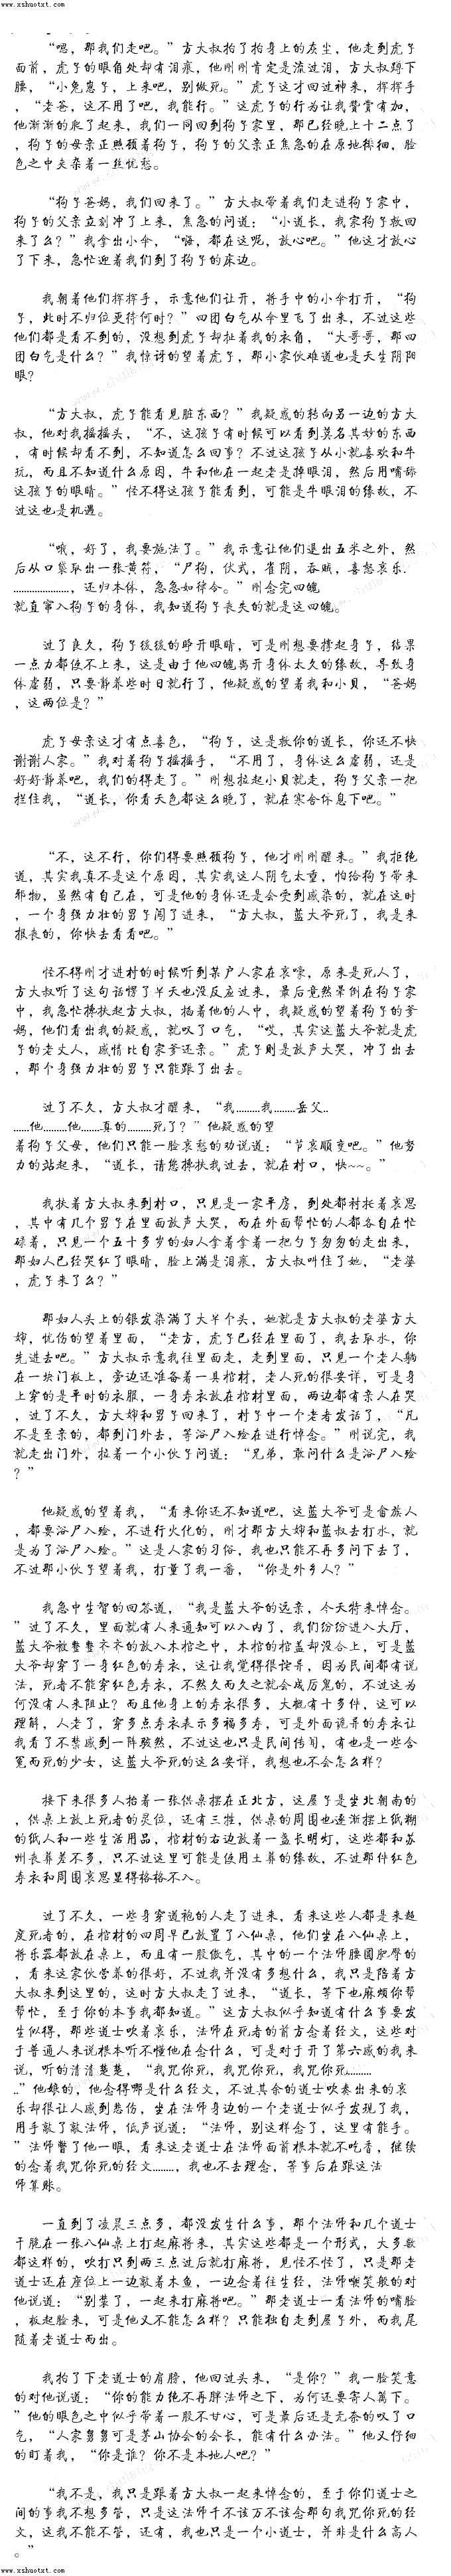 www.xshuotxt.com
“嗯，那我们走吧。”方大叔拍了拍身上的灰尘，他走到虎子
面前，虎子的眼角处却有泪痕，他刚刚肯定是流过泪，方大叔蹲下
腰，“小兔崽子，上来吧，别做死。”虎子这才回过神来，挥挥手
，“老爸，这不用了吧，我能行。”这虎子的行为让我赞赏有加，
他渐渐的爬了起来，我们一同回到狗子家里，那已经晚上十二点了
，狗子的母亲正照顾着狗子，狗子的父亲正焦急的在原地徘徊，脸
色之中夹杂着一丝忧愁。
“狗子爸妈，我们回来了。”方大叔带着我们走进狗子家中，
狗子的父亲立刻冲了上来，焦急的问道：“小道长，我家狗子救回
来了么？”我拿出小伞，“嗨，都在这呢，放心吧。”他这才放心
了下来，急忙迎着我们到了狗子的床边。
我朝着他们挥挥手，示意他们让开，将手中的小伞打开，“狗
子，此时不归位更待何时？”四团白气从伞里飞了出来，不过这些
他们都是看不到的，没想到虎子却扯着我的衣角，“大哥哥，那四
团白气是什么？”我惊讶的望着虎子，那小家伙难道也是天生阴阳
眼？
“方大叔，虎子能看见脏东西？”我疑惑的转向另一边的方大
叔，他对我摇摇头，“不，这孩子有时候可以看到莫名其妙的东西
，有时候却看不到，不知道怎么回事？不过这孩子从小就喜欢和牛
玩，而且不知道什么原因，牛和他在一起老是掉眼泪，然后用嘴舔
这孩子的眼睛。”怪不得这孩子能看到，可能是牛眼泪的缘故，不
过这也是机遇。
“哦，好了，我要施法了。”我示意让他们退出五米之外，然
后从口袋取出一张黄符，“尸狗，伏式，雀阴，吞贼，喜怒哀乐.
....................，还归本体，急急如律令。”刚念完四魄
就直窜入狗子的身体，我知道狗子丧失的就是这四魄。
过了良久，狗子缓缓的睁开眼睛，可是刚想要撑起身子，结果
一点力都使不上来，这是由于他四魄离开身体太久的缘故，导致身
体虚弱，只要静养些时日就行了，他疑惑的望着我和小贝，“爸妈
，这两位是？”
虎子母亲这才有点喜色，“狗子，这是救你的道长，你还不快
谢谢人家。”我对着狗子摇摇手，“不用了，身体这么虚弱，还是
好好静养吧，我们的得走了。”刚想拉起小贝就走，狗子父亲一把
拦住我，“道长，你看天色都这么晚了，就在寒舍休息下吧。”
“不，这不行，你们得要照顾狗子，他才刚刚醒来。”我拒绝
道，其实我真不是这个原因，其实我这人阴气太重，怕给狗子带来
邪物，虽然有自己在，可是他的身体还是会受到感染的，就在这时
，一个身强力壮的男子闯了进来，“方大叔，蓝大爷死了，我是来
报丧的，你快去看看吧。”
怪不得刚才进村的时候听到某户人家在哀嚎，原来是死人了，
方大叔听了这句话愣了半天也没反应过来，最后竟然晕倒在狗子家
中，我急忙搀扶起方大叔，掐着他的人中，我疑惑的望着狗子的爹
妈，他们看出我的疑惑，就叹了口气，“哎，其实这蓝大爷就是虎
子的老丈人，感情比自家爹还亲。”虎子则是放声大哭，冲了出去
，那个身强力壮的男子只能跟了出去。
过了不久，方大叔才醒来，“我.........我........岳父..
......他.........他.......真的.........死了？”他疑惑的望
着狗子父母，他们只能一脸哀愁的劝说道：“节哀顺变吧。”他努
力的站起来，“道长，请您搀扶我过去，就在村口，快~~。”
我扶着方大叔来到村口，只见是一家平房，到处都衬托着哀思
，其中有几个男子在里面放声大哭，而在外面帮忙的人都各自在忙
碌着，只见一个五十多岁的妇人拿着拿着一把勺子匆匆的走出来，
那妇人已经哭红了眼睛，脸上满是泪痕，方大叔叫住了她，“老婆
，虎子来了么？”
那妇人头上的银发染满了大半个头，她就是方大叔的老婆方大
婶，忧伤的望着里面，“老方，虎子已经在里面了，我去取水，你
先进去吧。”方大叔示意我往里面走，走到里面，只见一个老人躺
在一块门板上，旁边还准备着一具棺材，老人死的很安详，可是身
上穿的是平时的衣服，一身寿衣放在棺材里面，两边都有亲人在哭
，过了不久，方大婶和男子回来了，村子中一个老者发话了，“凡
不是至亲的，都到门外去，等浴尸入殓在进行悼念。”刚说完，我
就走出门外，拉着一个小伙子问道：“兄弟，敢问什么是浴尸入殓
？”
他疑惑的望着我，“看来你还不知道吧，这蓝大爷可是畲族人
，都要浴尸入殓，不进行火化的，刚才那方大婶和蓝叔去打水，就
是为了浴尸入殓。”这是人家的习俗，我也只能不再多问下去了，
不过那小伙子望着我，打量了我一番，“你是外乡人？”
我急中生智的回答道，“我是蓝大爷的远亲，今天特来悼念。
”过了不久，里面就有人来通知可以入内了，我们纷纷进入大厅，
蓝大爷被整整齐齐的放入木棺之中，木棺的棺盖却没合上，可是蓝
大爷却穿了一身红色的寿衣，这让我觉得很诧异，因为民间都有说
法，死者不能穿红色寿衣，不然久而久之就会成厉鬼的，不过这为
何没有人来阻止？而且他身上的寿衣很多，大概有十多件，这可以
理解，人老了，穿多点寿衣表示多福多寿，可是外面诡异的寿衣让
我看了不禁感到一阵骇然，不过这也只是民间传闻，有也是一些含
冤而死的少女，这蓝大爷死的这么安详，我想也不会怎么样？
接下来很多人抬着一张供桌摆在正北方，这屋子是坐北朝南的
，供桌上放上死者的灵位，还有三牲，供桌的周围也逐渐摆上纸糊
的纸人和一些生活用品，棺材的右边放着一盏长明灯，这些都和苏
州丧葬差不多，只不过这里可能是使用土葬的缘故，不过那件红色
寿衣和周围哀思显得格格不入。
过了不久，一些身穿道袍的人走了进来，看来这些人都是来超
度死者的，在棺材的四周早已放置了八仙桌，他们坐在八仙桌上，
将乐器都放在桌上，而且有一股傲气，其中的一个法师腰圆肥臀的
，看来这家伙营养的很好，不过我并没有多想什么，我只是陪着方
大叔来到这里的，这时方大叔走了过来，“道长，等下也麻烦你帮
帮忙，至于你的本事我都知道。”这方大叔似乎知道有什么事要发
生似得，那些道士吹着哀乐，法师在死者的前方念着经文，这些对
于普通人来说根本听不懂他在念什么，可是对于开了第六感的我来
说，听的清清楚楚，“我咒你死，我咒你死，我咒你死.........
..”他娘的，他念得哪是什么经文，不过其余的道士吹奏出来的哀
乐却很让人感到悲伤，坐在法师身边的一个老道士似乎发现了我，
用手敲了敲法师，低声说道：“法师，别这样念了，这里有能手。
”法师瞥了他一眼，看来这老道士在法师面前根本就不吃香，继续
的念着我咒你死的经文........，我也不去理念，等事后在跟这法
师算账。
一直到了凌晨三点多，都没发生什么事，那个法师和几个道士
干脆在一张八仙桌上打起麻将来，其实这些都是一个形式，大多数
都这样的，吹打只到两三点过后就打麻将，见怪不怪了，只是那老
道士还在座位上一边敲着木鱼，一边念着往生经，法师嘲笑般的对
他说道：“别装了，一起来打麻将吧。”那老道士一看法师的嘴脸
，板起脸来，可是他又不能怎么样？只能独自走到屋子外，而我尾
随着老道士而出。
我拍了下老道士的肩膀，他回过头来，“是你？”我一脸笑意
的对他说道：“你的能力绝不再胖法师之下，为何还要寄人篱下。
”他的眼色之中似乎带着一股不甘心，可是最后还是无奈的叹了口
气，“人家舅舅可是茅山协会的会长，能有什么办法。”他又仔细
的盯着我，“你是谁？你不是本地人吧？”
“我不是，我只是跟着方大叔一起来悼念的，至于你们道士之
间的事我不想多管，只是这法师千不该万不该念那句我咒你死的经
文，这我不能不管，还有，我也只是一个小道士，并非是什么高人
。”
www.xshuotxt.com